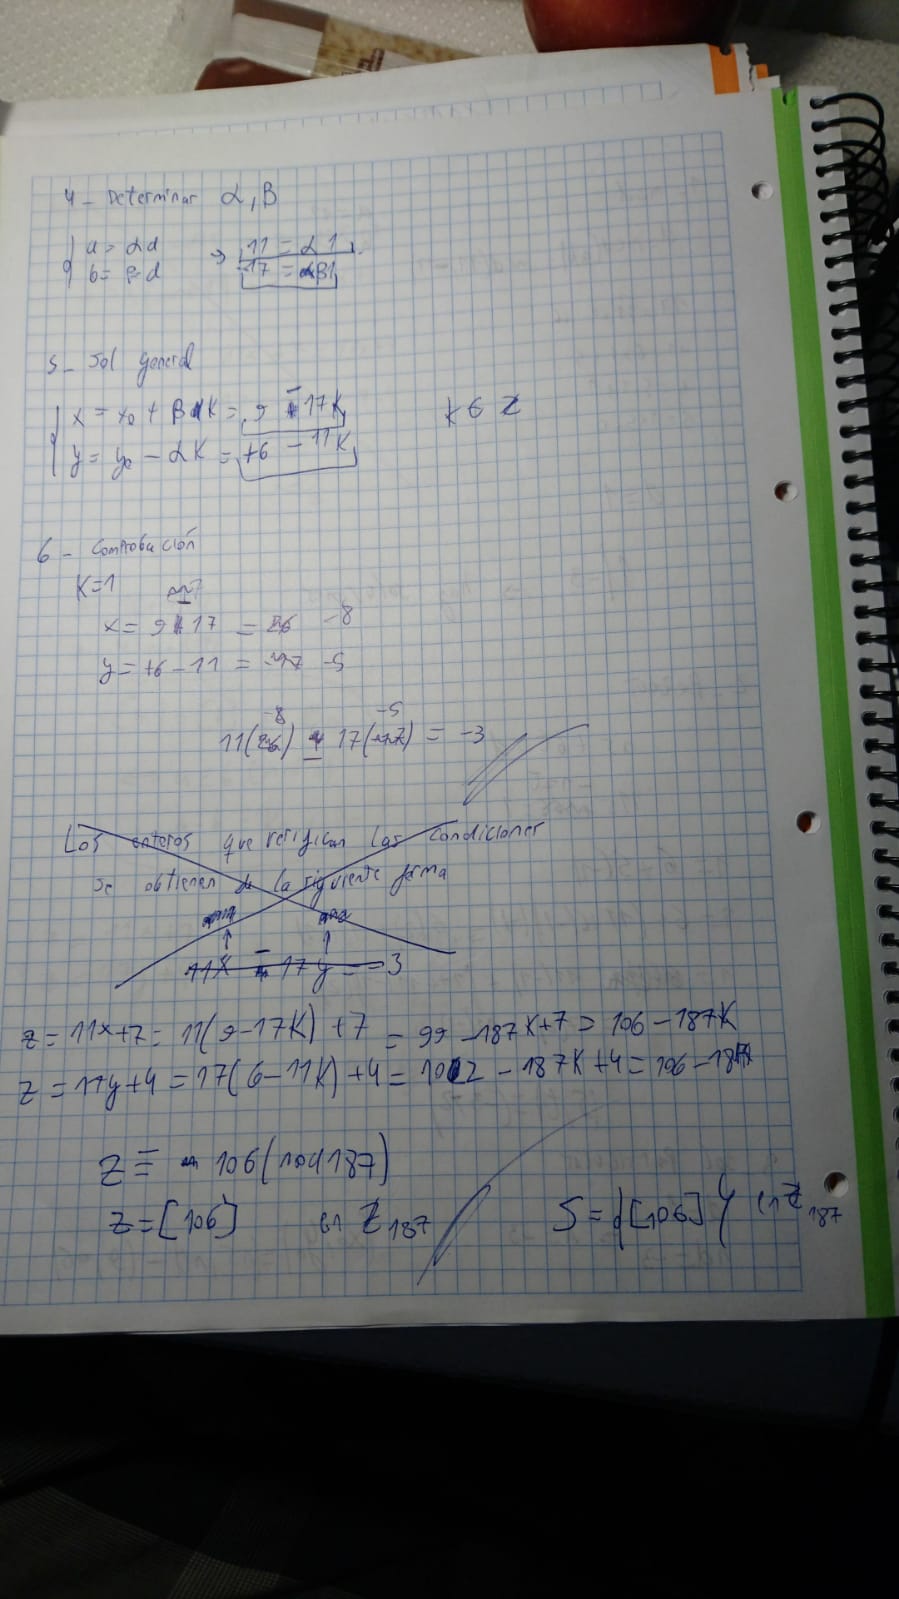 4- Determinar α, β
a = αd → 11 = α1
b = βd -17 = β1
5- Sol general
x = x₀ + βK = 9 - 17K K ∈ Z
y = y₀ - αK = +6 - 11K
6- Comprobación
K=1
x = 9 - 17 = -8
y = +6 - 11 = -5
-8 -5
11( ) - 17( ) = -3
Los enteros que verifican las condiciones
se obtienen de la siguiente forma
11x - 17y = -3
z = 11x+7 = 11(9-17K) +7 = 99 -187K+7 = 106 - 187K
z = 17y+4 = 17(6-11K)+4 = 102 - 187K+4 = 106-187K
z ≡ 106 (mod 187)
z = [106] en Z₁₈₇ S = {[106]} en Z₁₈₇